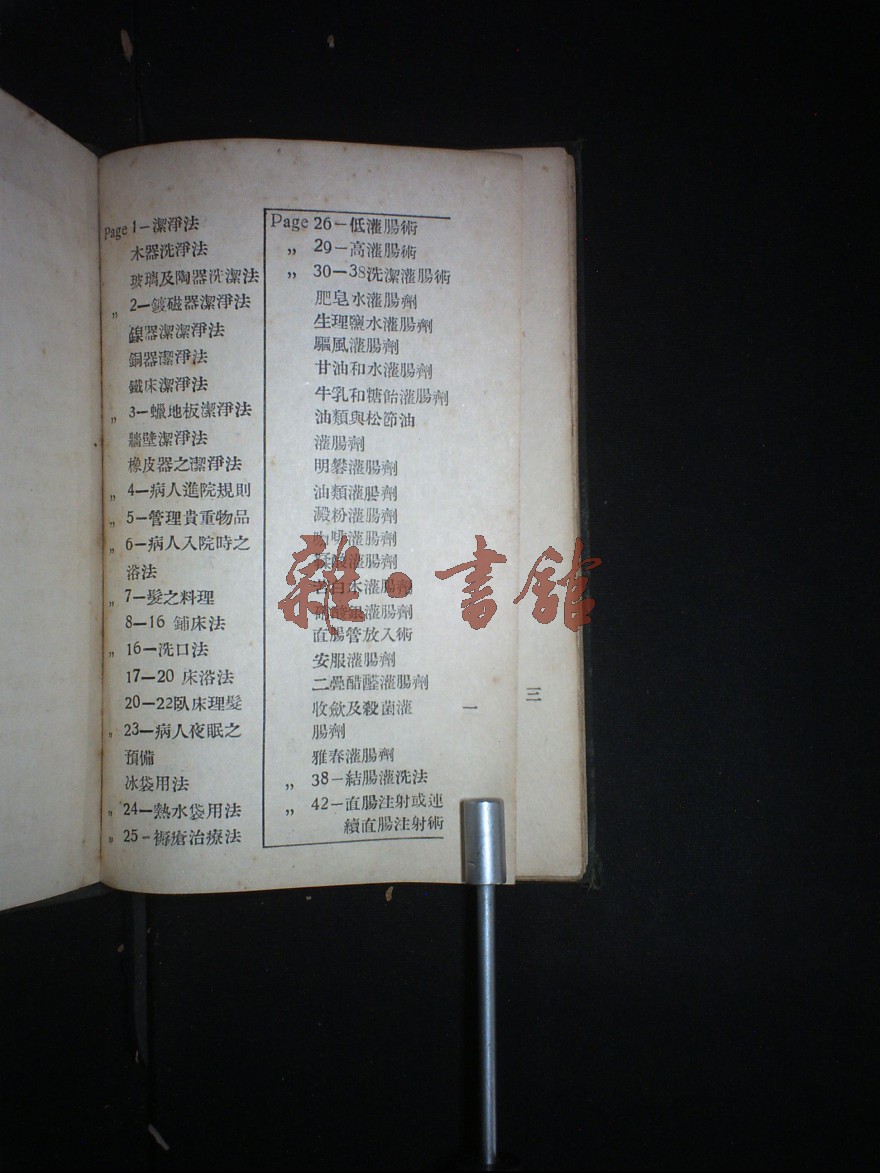 Page 1—潔淨法
木器洗淨法
玻璃及陶器洗潔法
„ 2—鍍磁器潔淨法
鎳器潔潔淨法
銅器潔淨法
鐵床潔淨法
„ 3—蠟地板潔淨法
牆壁潔淨法
橡皮器之潔淨法
„ 4—病人進院規則
„ 5—管理貴重物品
„ 6—病人入院時之
浴法
„ 7—髮之料理
8—16 鋪床法
„ 16—洗口法
17—20 床浴法
20—22臥床理髮
„ 23—病人夜眠之
預備
冰袋用法
„ 24—熱水袋用法
„ 25—褥瘡治療法
Page 26—低灌腸術
„ 29—高灌腸術
„ 30—38洗潔灌腸術
肥皂水灌腸劑
生理鹽水灌腸劑
驅風灌腸劑
甘油和水灌腸劑
牛乳和糖飴灌腸劑
油類與松節油
灌腸劑
明礬灌腸劑
油類灌腸劑
澱粉灌腸劑
咖啡灌腸劑
鞣酸灌腸劑
蛋白水灌腸劑
硝酸銀灌腸劑
直腸管放入術
安服灌腸劑
二疊醋醛灌腸劑
收歛及殺菌灌
腸劑
雅春灌腸劑
„ 38—結腸灌洗法
„ 42—直腸注射或連
續直腸注射術
一
三
雜·書館